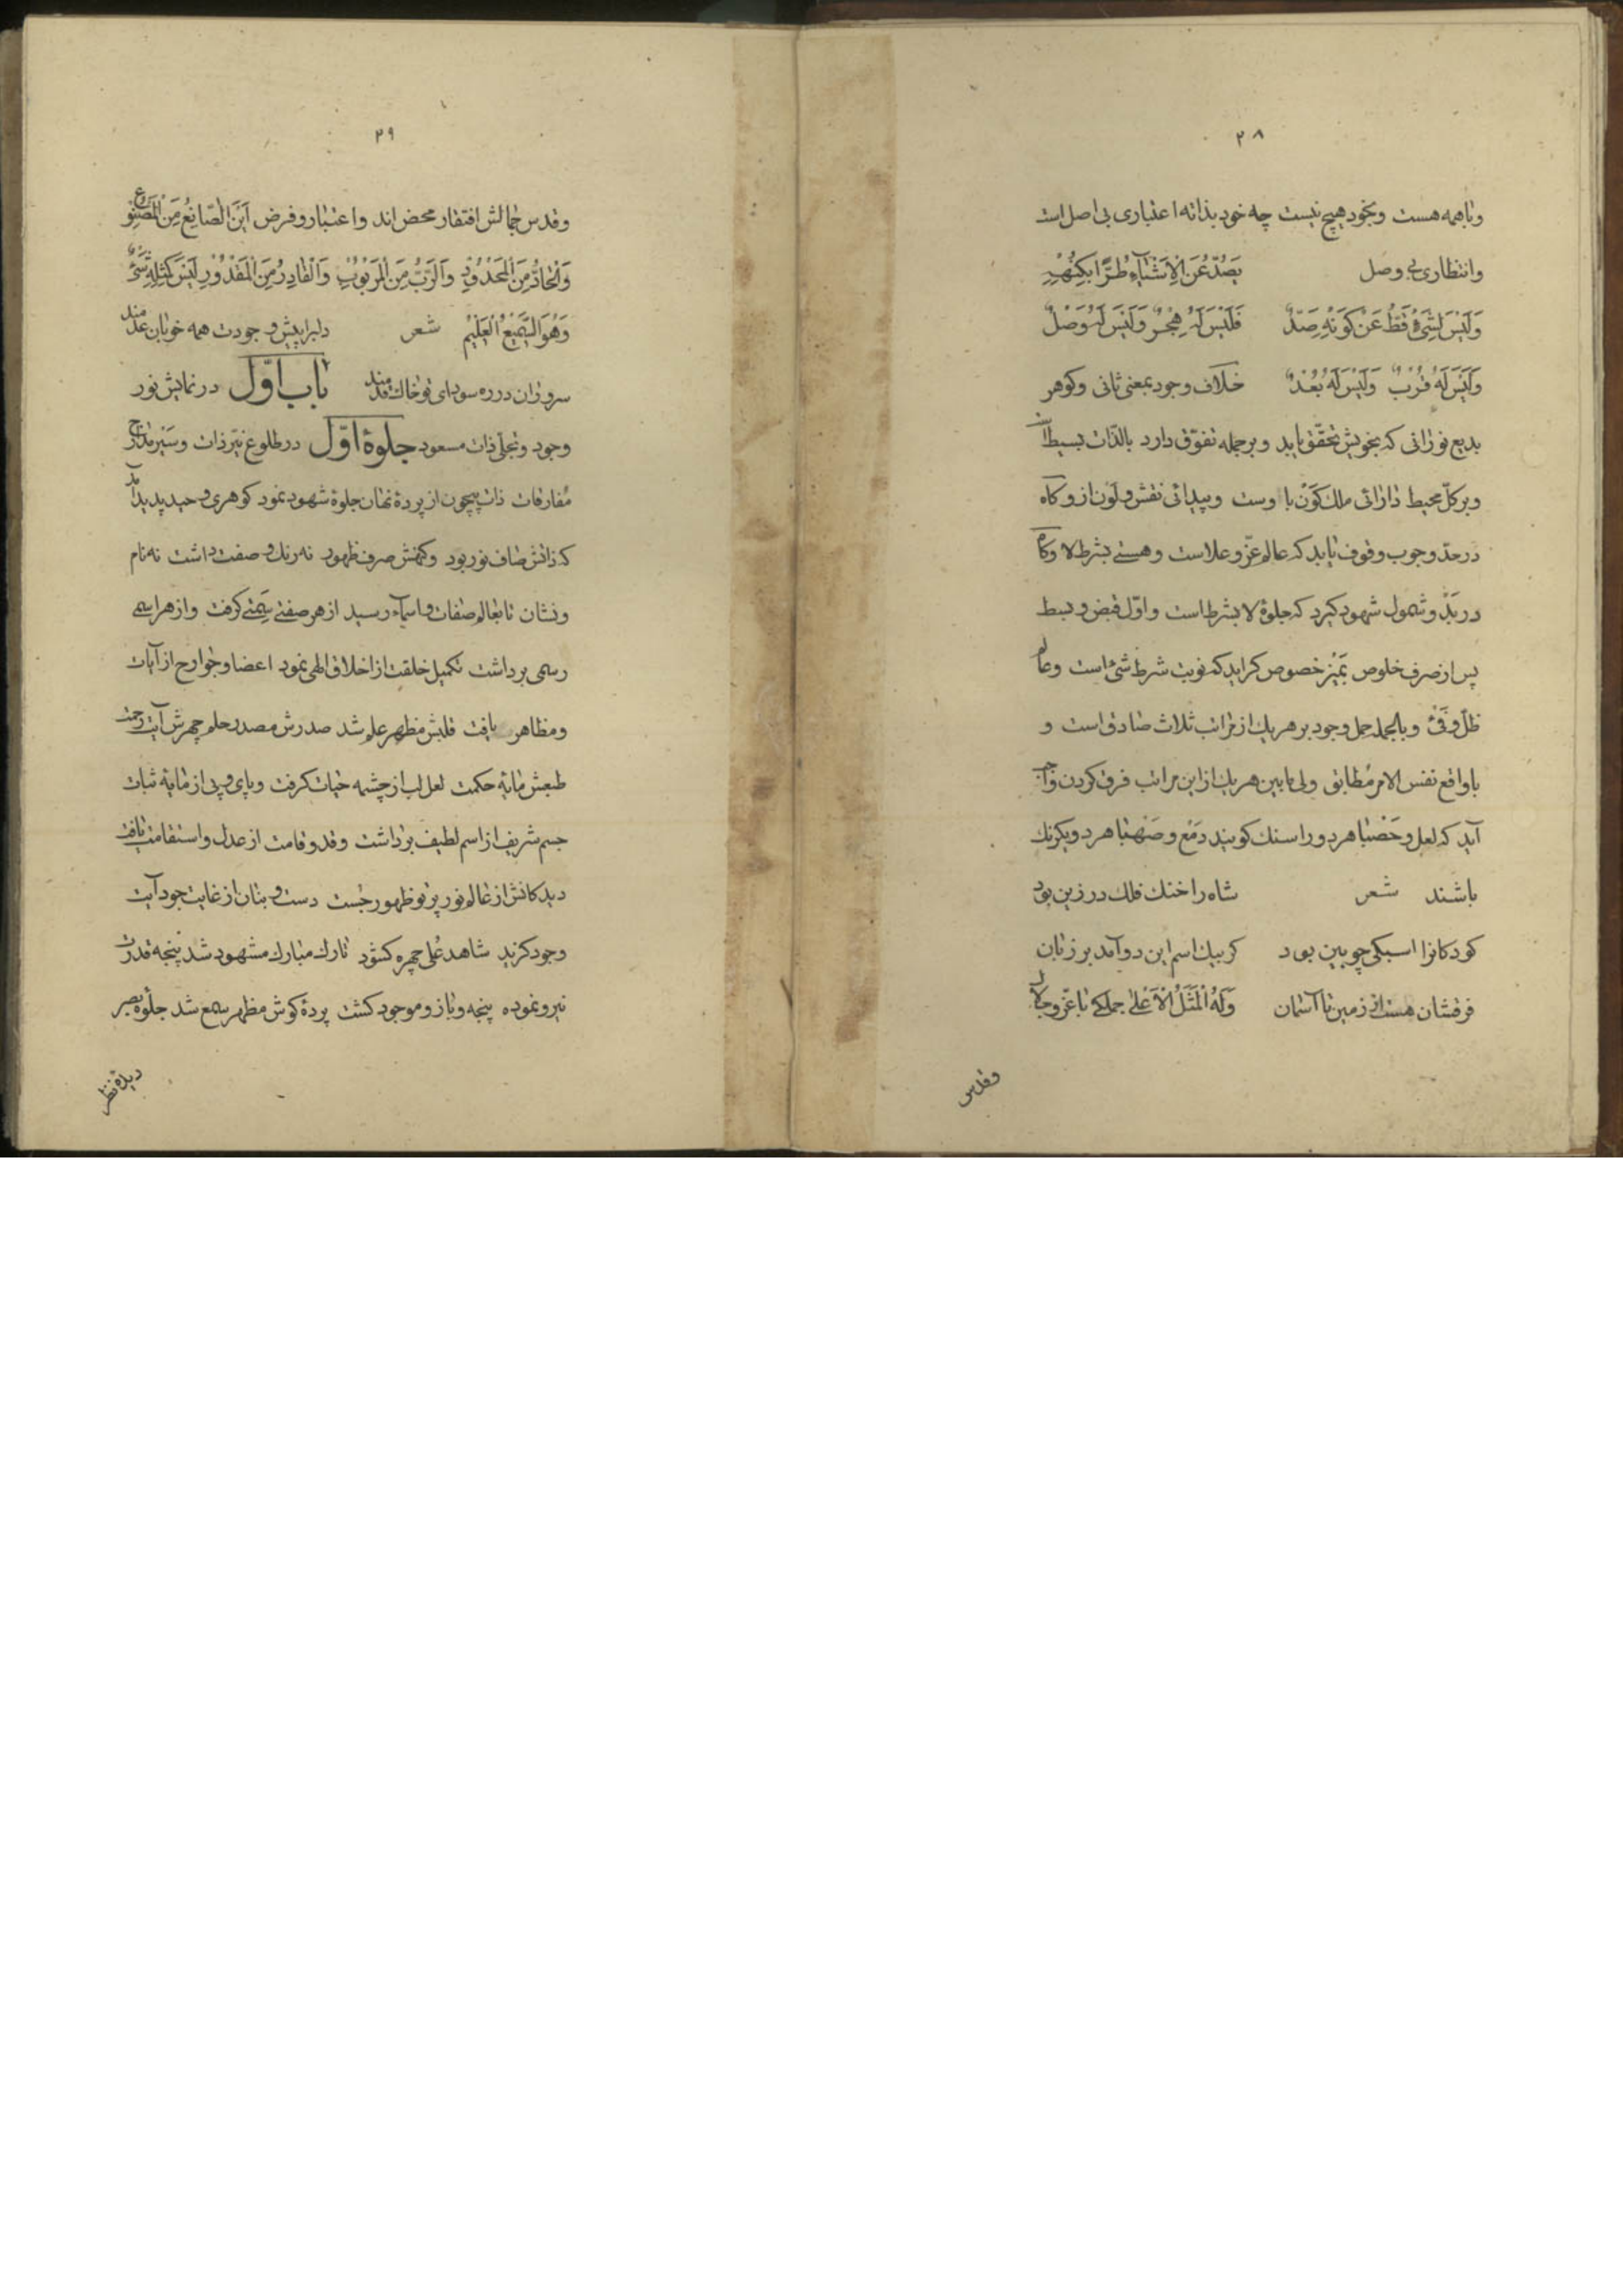 ۲۸
وباهمه هست وبخود هیچ نیست چه خود بذاته اعتباری بی اصل است
وانتظاری بی وصل یَصُدُّ عَنِ الْاَشْیَآءِ طُرًّا بِکُنْهِهِ
وَلَیْسَ لِشَیْءٍ قَطُّ عَنْ کَوْنِهِ صَدٌّ فَلَیْسَ لَهُ هِجْرٌ وَلَیْسَ لَهُ وَصْلٌ
وَلَیْسَ لَهُ قُرْبٌ وَلَیْسَ لَهُ بُعْدٌ خلاف وجود بمعنی ثانی وکوهر
بدیع نورانی که بخویش تحقّق یابد وبر جمله تفوّق دارد بالذّات بسیط است
وبر کلّ محیط دارائی ملک کَوْن با اوست وپیدائی نقش ولَوْن از و کاه
در حدّ وجوب وقوف یابد که عالم عزّ وعلاست وهستی بشرط لا وکاه
در بَدْ وشمول شهود کیرد که جلوهٔ لا بشرط است واوّل قبض وبسط
پس از صرف خلوص بَمَیْز خصوص کراید که نوبت شرط شیٔ است وعالم
ظلّ وفَیْ وبالجمله حمل وجود بر هریک از مراتب ثلاث صادق است و
با واقع نفس الامر مُطابق ولی مابین هریک از این مراتب فرق کردن واجب
آید که لعل وحَصْبا هر دو را سنک کویند دمَع وصَهْبا هر دو یکرنک
باشند شعر شاه را خنک فلک در زین بود
کودکانرا اسبکی چوبین بود کر بیک اسم این دو آمد بر زبان
فرقشان هست از زمین تا آسمان وَلَهُ الْمَثَلُ الْاَعْلی جملکی باعزّ وجلال
وقدس
۲۹
وقدس جمالش افتقار محض اند واعتبار وفرض اَیْنَ الصّانِعُ مِنَ الْمَصْنُوعِ
وَالْحَادُّ مِنَ الْمَحْدُودِ وَالرَّبُّ مِنَ الْمَرْبُوبِ وَالْقادِرُ مِنَ الْمَقْدُورِ لَیْسَ کَمِثْلِهِ شَیْءٌ
وَهُوَ السَّمیعُ الْعَلیمُ شعر دلبرا پیش وجودت همه خوبان عدمند
سروران در ره سودای تو خاک قدمند باب اوّل در نمایش نور
وجود وتجلّی ذات مسعود جلوهٔ اوّل در طلوع نیّر ذات وسَیْر مدارج
مُفارقات ذات بیچون از پردهٔ نهان جلوهٔ شهود نمود کوهری وحید پدید آمد
که ذاتش صاف نور بود وکنهش صرف ظهور نه رنک وصفت داشت نه نام
ونشان تا بعالم صفات واسماء رسید از هر صفتی سَمتی کرفت واز هر اسمی
رسمی برداشت تکمیل خلقت از اخلاق الهی نمود اعضا وجوارح از آیات
ومظاهر یافت قلبش مظهر علم شد صدرش مصدر حلم چهرش آیت رحمت
طبعش مایهٔ حکمت لعل لب از چشمه حیات کرفت وپای وپی از مایهٔ ثبات
جسم شریف از اسم لطیف برداشت وقد وقامت از عدل واستقامت یافت
دیدکانش از عالم نور پرتو ظهور جست دست وبنان از غایت جود آیت
وجود کزید شاهد عُلی چهره کشود تارک مبارک مشهود شد پنجه قدرت
نیرو نموده پنجه وبازو موجود کشت پردهٔ کوش مظهر سمع شد جلوهٔ بصر
دیدهٔ نظر